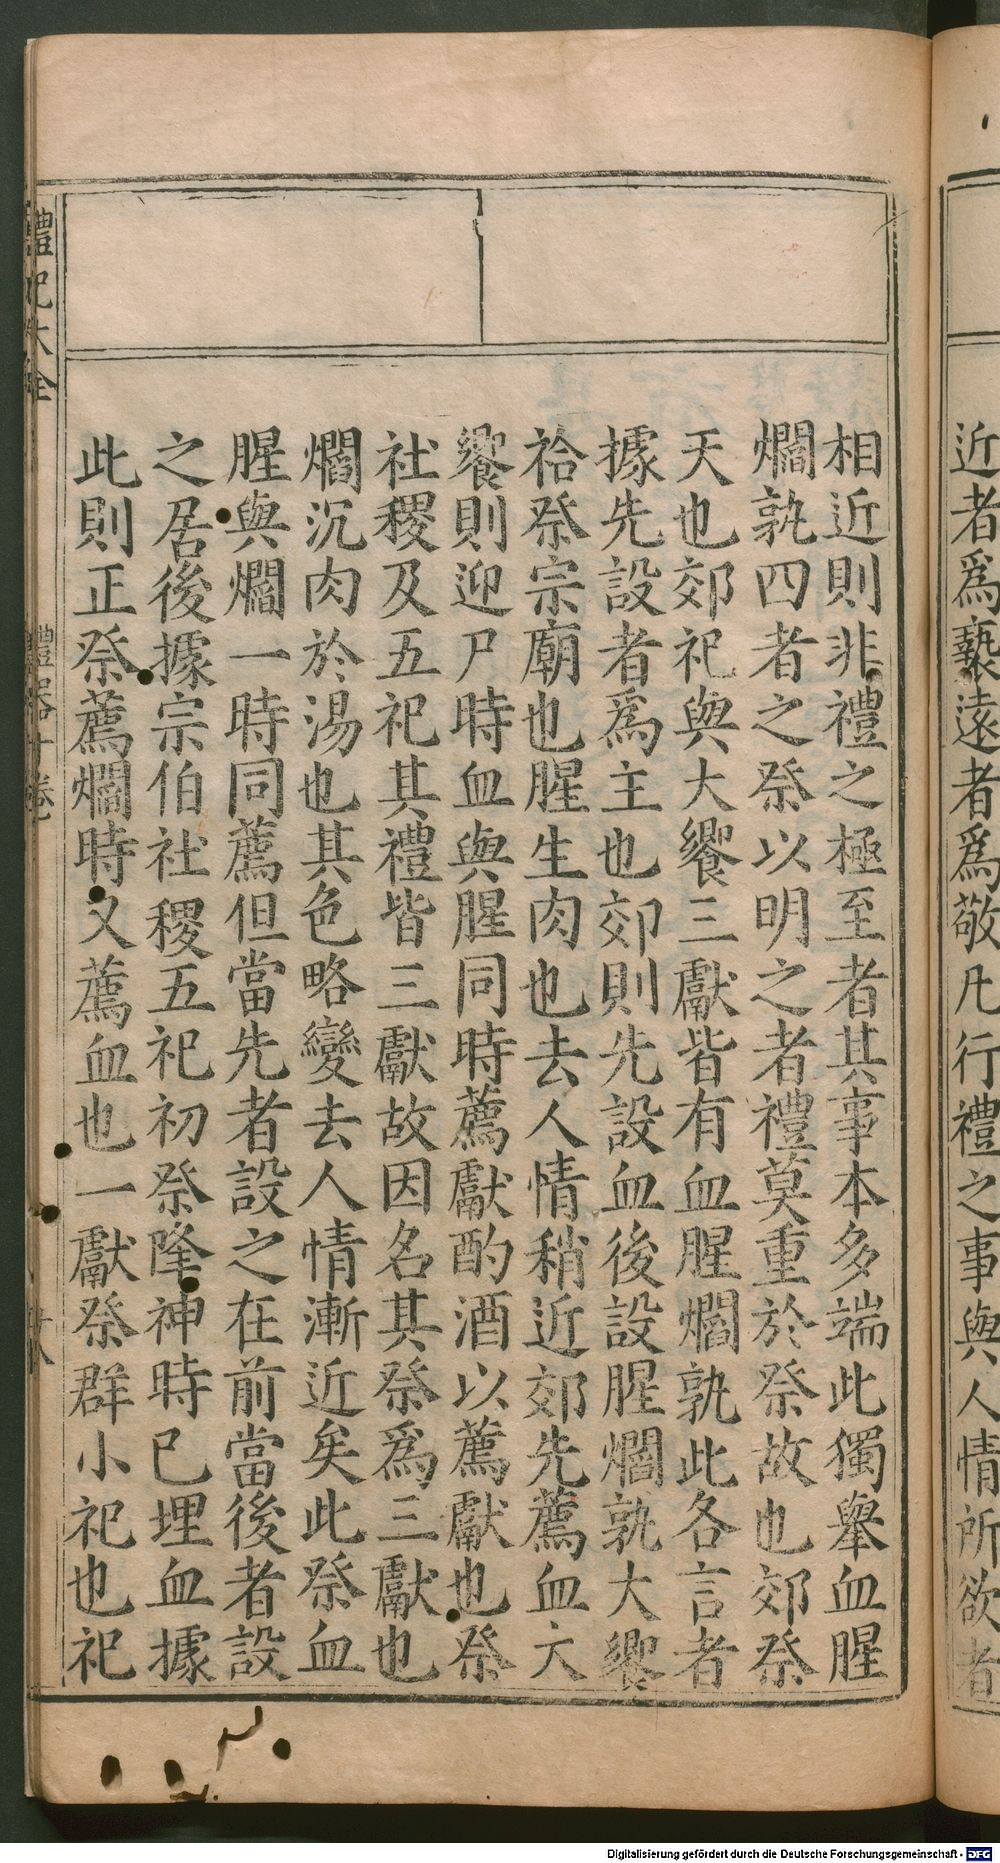 近者爲褻遠者爲敬凡行禮之事與人情所欲者
相近則非禮之極至者其事本多端此獨舉血腥
爓孰四者之祭以明之者禮莫重於祭故也郊祭
天也郊祀與大饗三獻皆有血腥爓孰此各言者
據先設者爲主也郊則先設血後設腥爓孰大饗
祫祭宗廟也腥生肉也去人情稍近郊先薦血大
饗則迎尸時血與腥同時薦獻酌酒以薦獻也祭
社稷及五祀其禮皆三獻故因名其祭爲三獻也
爓沉肉於湯也其色略變去人情漸近矣此祭血
腥與爓一時同薦但當先者設之在前當後者設
之居後據宗伯社稷五祀初祭降神時已埋血據
此則正祭薦爓時又薦血也一獻祭群小祀也祀
禮記大全
禮器十卷
Digitalisierung gefördert durch die Deutsche Forschungsgemeinschaft - DFG